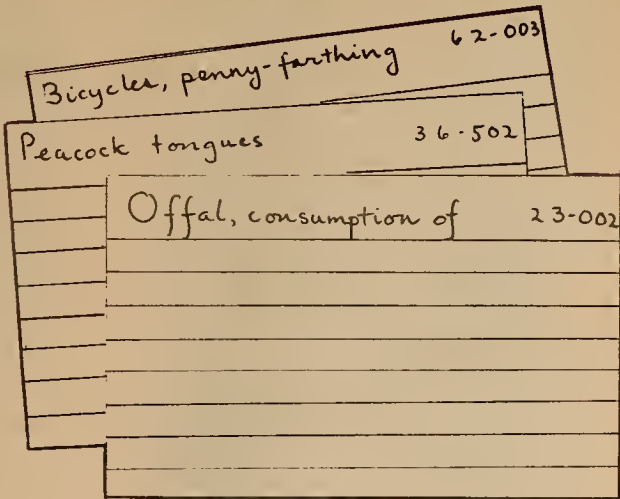 Bicycles, penny-farthing 62-003
Peacock tongues 36-502
Offal, consumption of 23-002